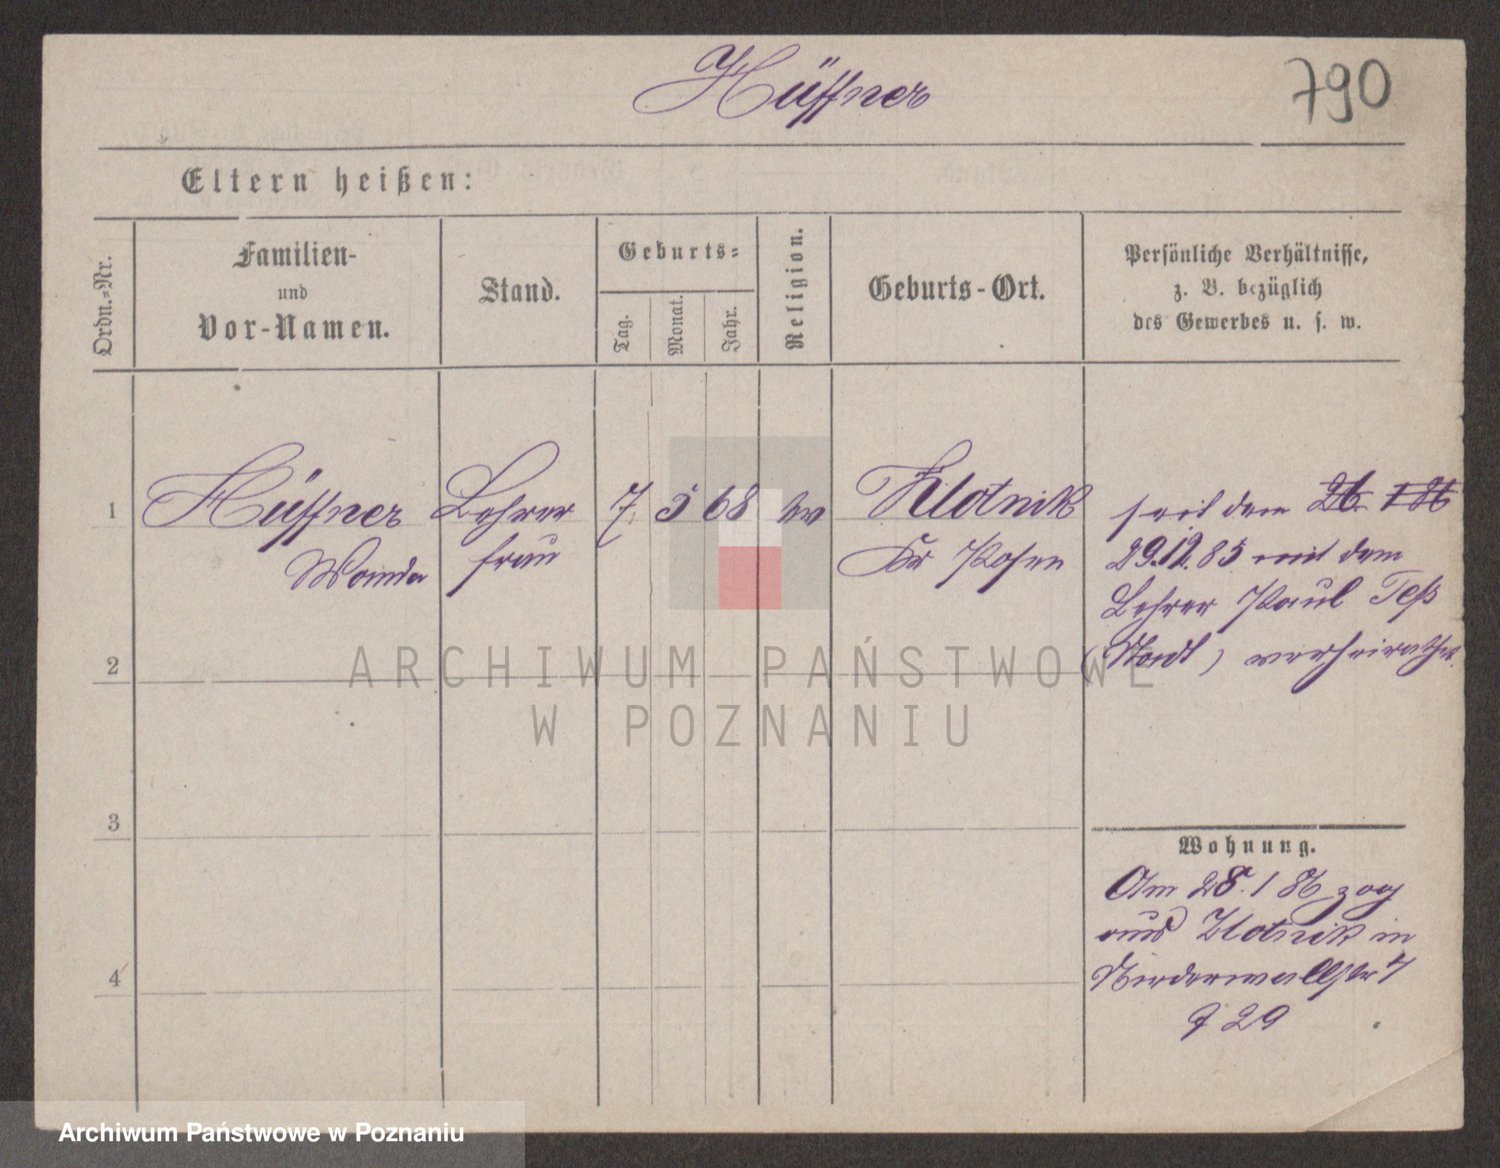 Hüffner
790
Eltern heißen:
Ordn.=Nr.
Familien-
und
Vor-Namen.
Stand.
Geburts=
Tag.
Monat.
Jahr.
Religion.
Geburts-Ort.
Persönliche Verhältnisse,
z. B. bezüglich
des Gewerbes u. s. w.
1
Hüffner
Wanda
Lehrer
frau
7
5
68
ev
Zlotnik
Kr Posen
seit dem 26. 1 86
29.12.85 mit dem
Lehrer Paul
verheirathet
2
3
4
Wohnung.
Am 28. 1 86 zog
aus Zlotnik in
Niederwallstr 7
29
ARCHIWUM PAŃSTWOWE
W POZNANIU
Archiwum Państwowe w Poznaniu